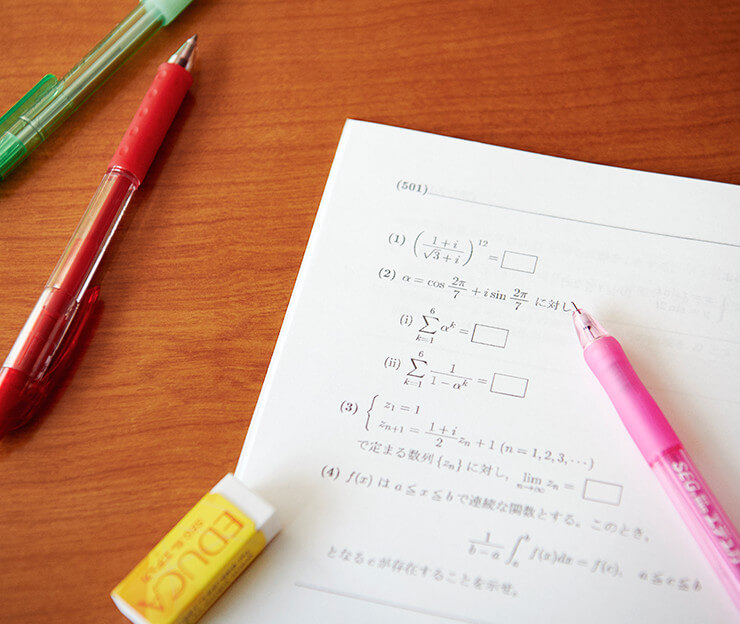 (501)
(1) ((1+i)/(√3+i))^12 = □
(2) α = cos 2π/7 + i sin 2π/7 に対し
(i) ∑_{k=1}^{6} α^k = □
(ii) ∑_{k=1}^{6} 1/(1−α^k) = □
(3) { z_1 = 1
z_{n+1} = (1+i)/2 z_n + 1 (n = 1, 2, 3, ⋯)
で定まる数列 {z_n} に対し, lim_{n→∞} z_n = □
(4) f(x) は a ≦ x ≦ b で連続な関数とする。このとき,
1/(b−a) ∫_a^b f(x)dx = f(c), a ≦ c ≦ b
となる c が存在することを示せ。
EDUCA
SEG